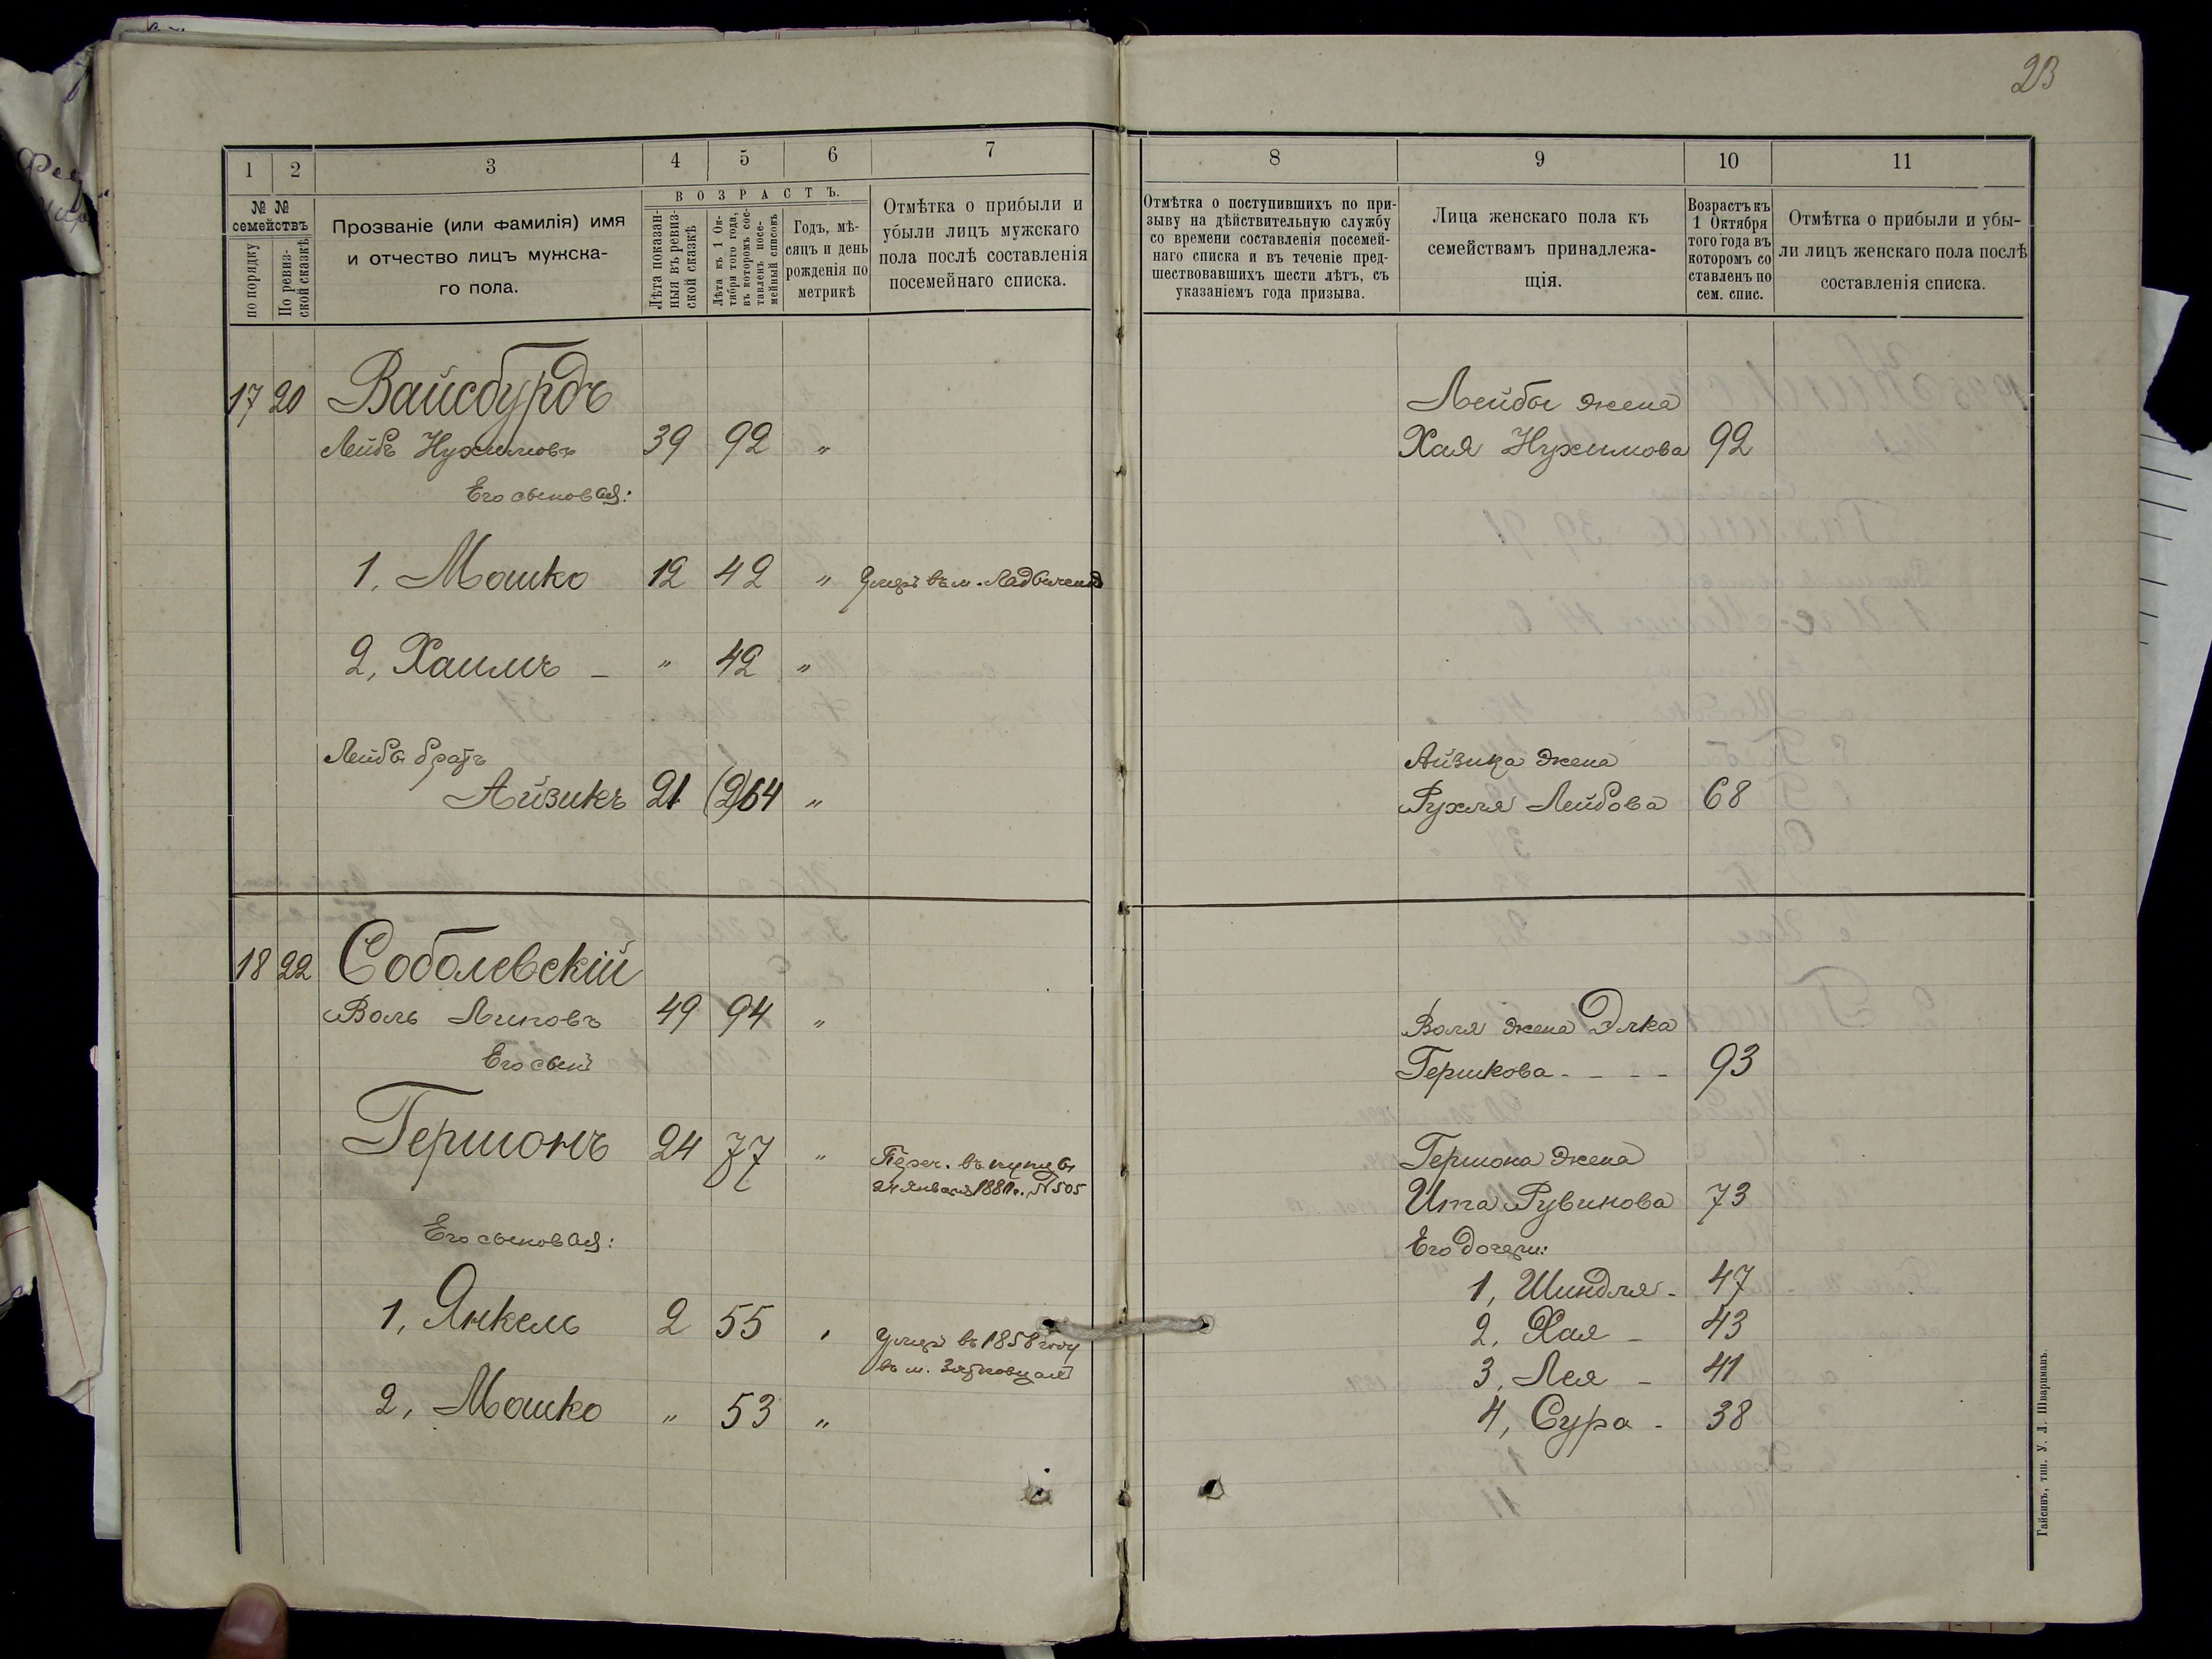 23
1
2
3
4
5
6
7
№ №
семействъ
по порядку
По ревиз-
ской сказкѣ
Прозваніе (или фамилія) имя
и отчество лицъ мужска-
го пола.
ВОЗРАСТЪ.
Лѣта показан-
ныя въ ревиз-
ской сказкѣ
Лѣта къ 1 Ок-
тября того года,
въ которомъ сос-
тавленъ посе-
мейный списокъ
Годъ, мѣ-
сяцъ и день
рожденія по
метрикѣ
Отмѣтка о прибыли и
убыли лицъ мужскаго
пола послѣ составленія
посемейнаго списка.
17 20 Вайсбурдъ
Лейбъ Нухимовъ 39 92 "
Его сыновья:
1, Мошко 12 42 " Умеръ въ м.
2, Хаимъ - " 42 "
Лейбы братъ
Айзикъ 21 (2)64 "
18 22 Соболевскій
Воль Липовъ 49 94 "
Его сынъ
Гершонъ 24 77 " Переч. въ купцы
24 Января 1881 г. № 505
Его сыновья:
1, Янкель 2 55 " Умеръ въ 1858 году
въ м. Зятковцахъ
2, Мошко " 53 "
8
9
10
11
Отмѣтка о поступившихъ по при-
зыву на дѣйствительную службу
со времени составленія посемей-
наго списка и въ теченіе пред-
шествовавшихъ шести лѣтъ, съ
указаніемъ года призыва.
Лица женскаго пола къ
семействамъ принадлежа-
щія.
Возрастъ къ
1 Октября
того года въ
которомъ со
ставленъ по
сем. спис.
Отмѣтка о прибыли и убы-
ли лицъ женскаго пола послѣ
составленія списка.
Лейбы жена
Хая Нухимова 92
Айзика жена
Рухля Лейбова 68
Воля жена Элка
Гершкова - - - - 93
Гершона жена
Ита Рувинова 73
Его дочери:
1, Шиндля - 47
2, Хая - 43
3, Лея - 41
4, Сура - 38
Гайсинъ, тип. У. Л. Шварцманъ.